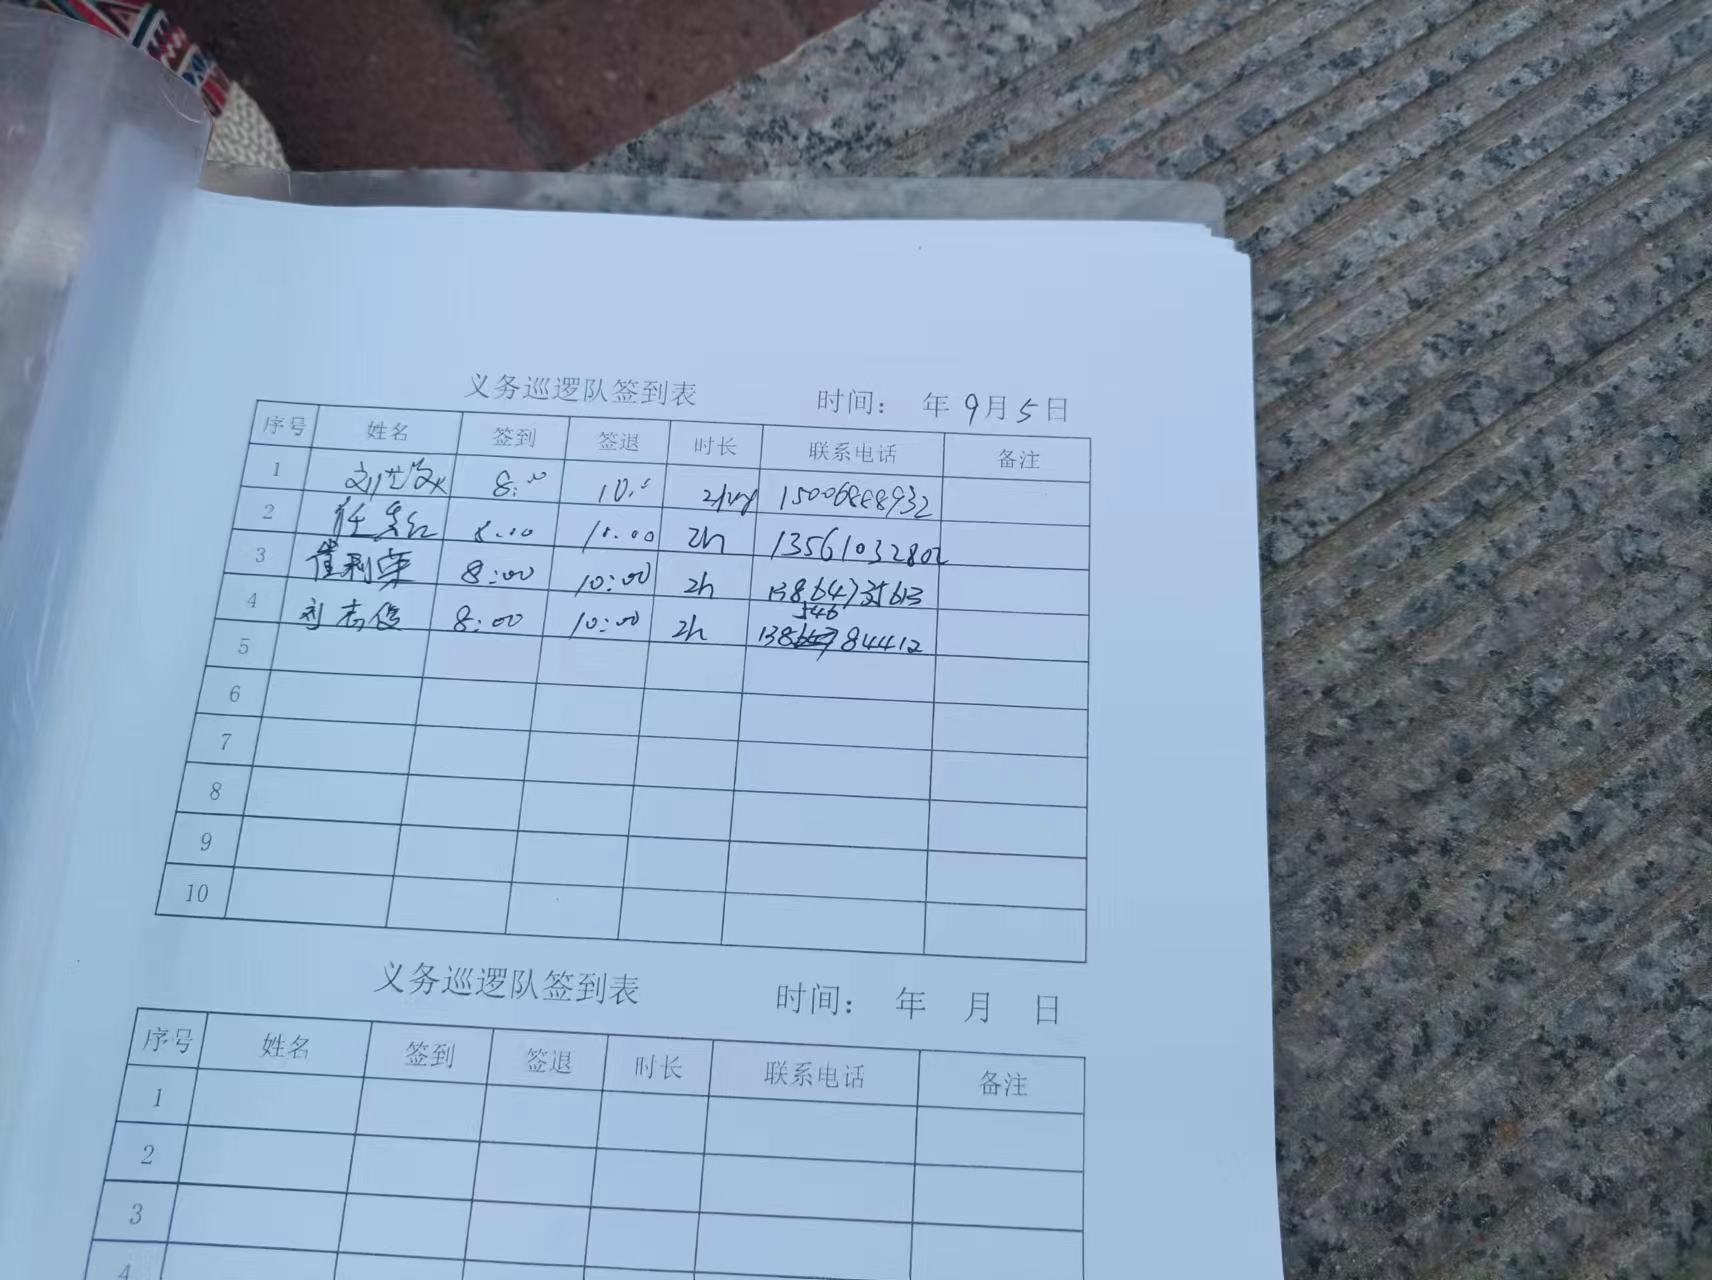 义务巡逻队签到表 时间： 年 9月5日
序号 姓名 签到 签退 时长 联系电话 备注
1 8:00 10:0 15006868932
2 8:00 10:00 2h 13561032802
3 崔利荣 8:00 10:00 2h
4 刘志俊 8:00 10:00 2h 13854684412
5
6
7
8
9
10
义务巡逻队签到表 时间： 年 月 日
序号 姓名 签到 签退 时长 联系电话 备注
1
2
3
4